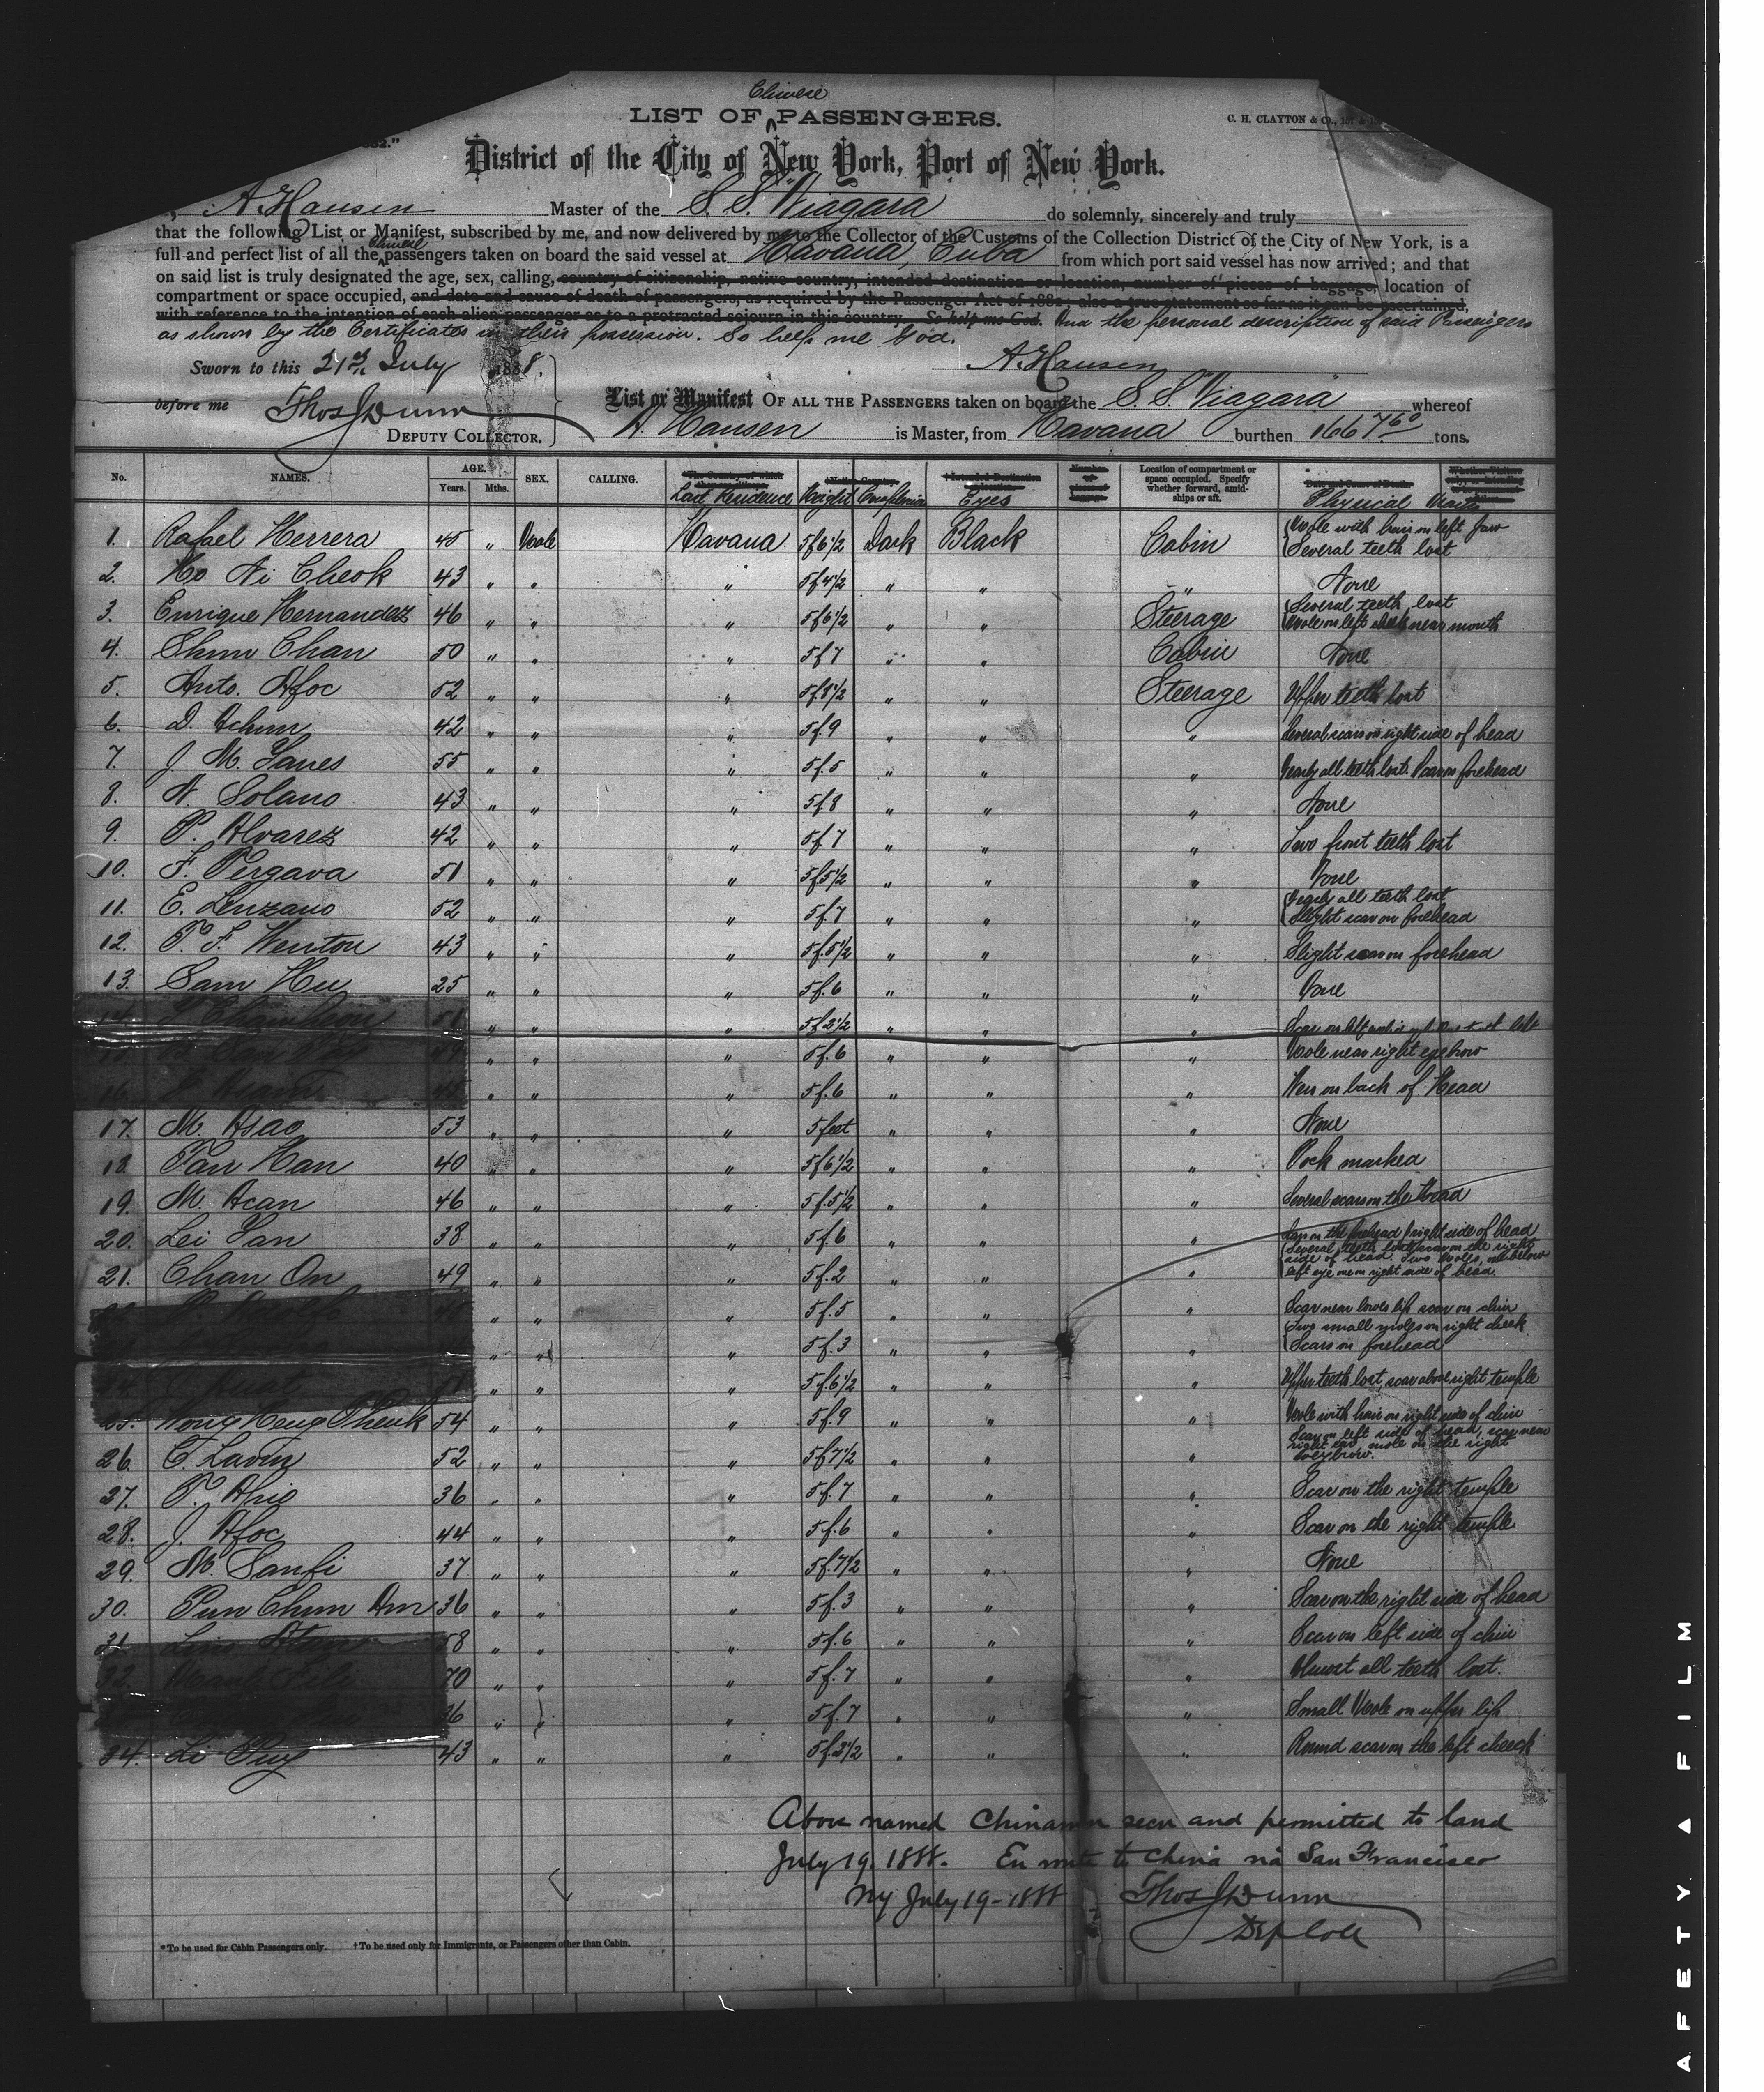 Chinese
LIST OF PASSENGERS.
C. H. CLAYTON & CO., 157
District of the City of New York, Port of New York.
A. Hansen Master of the S. S. Niagara do solemnly, sincerely and truly
that the following List or Manifest, subscribed by me, and now delivered by me to the Collector of the Customs of the Collection District of the City of New York, is a
full and perfect list of all the Chinese passengers taken on board the said vessel at Havana, Cuba from which port said vessel has now arrived; and that
on said list is truly designated the age, sex, calling, country of citizenship, native country, intended destination or location, number of pieces of baggage, location of
compartment or space occupied, and date and cause of death of passengers, as required by the Passenger Act of 1882; also a true statement so far as it can be ascertained,
with reference to the intention of each alien passenger as to a protracted sojourn in this country. So help me God. And the personal description of said Passengers
as shown by the Certificates in their possession. So help me God.
A. Hansen
Sworn to this 21st July 1888.
before me Thos J Dunn
DEPUTY COLLECTOR.
List or Manifest OF ALL THE PASSENGERS taken on board the S. S. Niagara whereof
A. Hansen is Master, from Havana burthen 1667 60 tons.
No. NAMES. AGE. Years. Mths. SEX. CALLING. Last Residence Height Complexion Eyes Location of compartment or space occupied. Specify whether forward, amidships or aft. Physical Marks
1. Rafael Herrera 45 " Male Havana 5f6 1/2 Dark Black Cabin Mole with hair on left jaw Several teeth lost
2. Ho Ni Cheok 43 " " " 5f4 1/2 " " " None
3. Enrique Hernandez 46 " " " 5f6 1/2 " " Steerage Several teeth lost Mole on left cheek near mouth
4. Shun Chan 50 " " " 5f7 " " Cabin None
5. Anto. Afoc 52 " " " 5f8 1/2 " " Steerage Upper teeth lost
6. D. Achun 42 " " " 5f.9 " " " Several scars on right side of head
7. J. M. Sanes 55 " " " 5f.5 " " " Nearly all teeth lost. Scar on forehead
8. N. Solano 43 " " " 5f.8 " " " None
9. P. Alvarez 42 " " " 5f.7 " " " Two front teeth lost
10. F. Pergava 51 " " " 5f5 1/2 " " " None
11. E. Lenzano 52 " " " 5f.7 " " " Nearly all teeth lost Slight scar on forehead
12. P. F. Wenton 43 " " " 5f.5 1/2 " " " Slight scar on forehead
13. Sam Hu 25 " " " 5f.6 " " " None
51 " " " 5f2 1/2 " " " Scar on left
" " " 5f.6 " " " Mole near right eyebrow
16. 45 " " " 5f.6 " " " Wen on back of Head
17. M. Asao 53 " " " 5 feet " " " None
18. Pan Han 40 " " " 5f6 1/2 " " " Pock marked
19. M. Acan 46 " " " 5f.5 1/2 " " " Several scars on the Head
20. Lei San 38 " " " 5f.6 " " " Scar on the forehead right side of head
21. Chan On 49 " " " 5f.2 " " " Several teeth lost scar on the right side of head. Two moles, one below left eye one on right side of head.
" " " 5f.5 " " " Scar near lower lip scar on chin
" " " 5f.3 " " " Two small moles on right cheek Scars on forehead
" " " 5f.6 1/2 " " " Upper teeth lost, scar above right temple
25. Wong Heng Cheuk 54 " " " 5f.9 " " " Mole with hair on right side of chin
26. C. Lavin 52 " " " 5f7 1/2 " " " Scar on left side of head, scar near right ear, mole on the right eyebrow.
27. P. Ahio 36 " " " 5f.7 " " " Scar on the right temple
28. J. Afoc 44 " " " 5f.6 " " " Scar on the right temple
29. M. Sanfi 37 " " " 5f.7 1/2 " " " None
30. Pun Chun Am 36 " " " 5f.3 " " " Scar on the right side of head
31. 58 " " " 5f.6 " " " Scar on left side of chin
32. 70 " " " 5f.7 " " " Almost all teeth lost.
" " " 5f.7 " " " Small Mole on upper lip
34. Li Puy 43 " " " 5f.3 1/2 " " " Round scar on the left cheek
Above named Chinamen seen and permitted to land
July 19, 1888. En route to China via San Francisco
NY July 19-1888 Thos J Dunn
Dep Coll
*To be used for Cabin Passengers only. †To be used only for Immigrants, or Passengers other than Cabin.
AFETY ▲ FILM